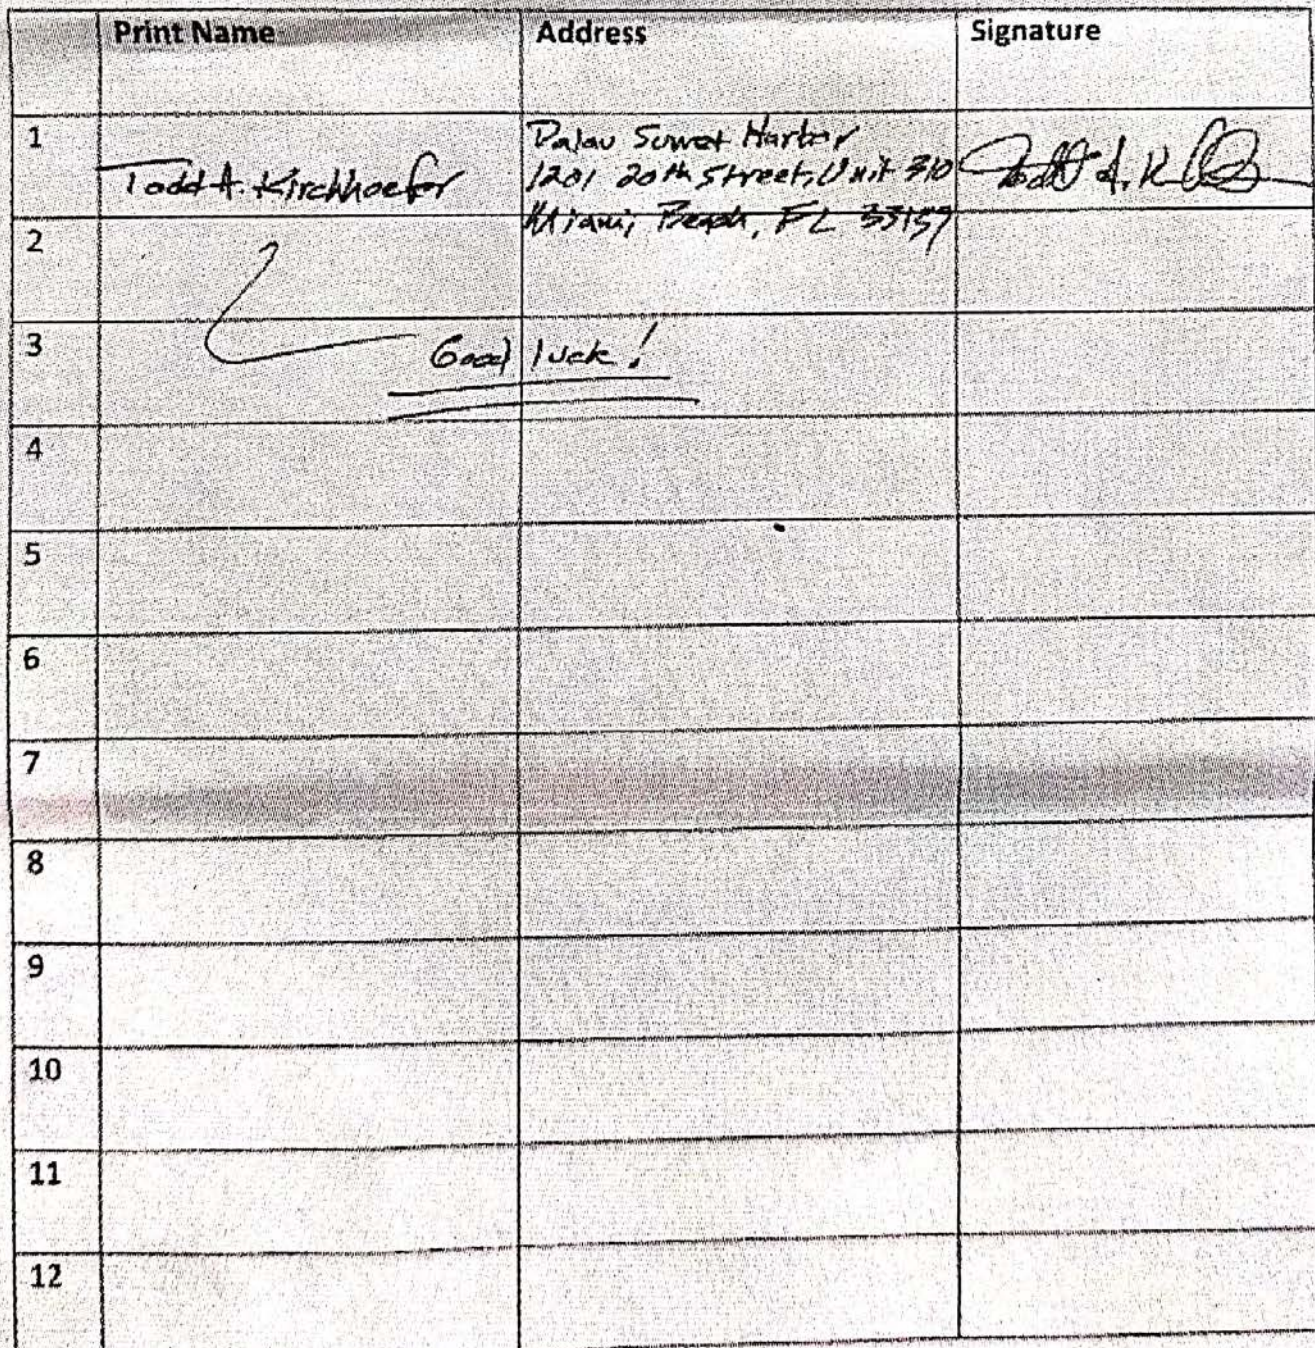 Print Name Address Signature
1
Todd A. Kirchhoefer
Palau Sunset Harbor
1201 20th Street, Unit 310
Miami Beach, FL 33139
Todd A. K
2
3
Good luck!
4
5
6
7
8
9
10
11
12